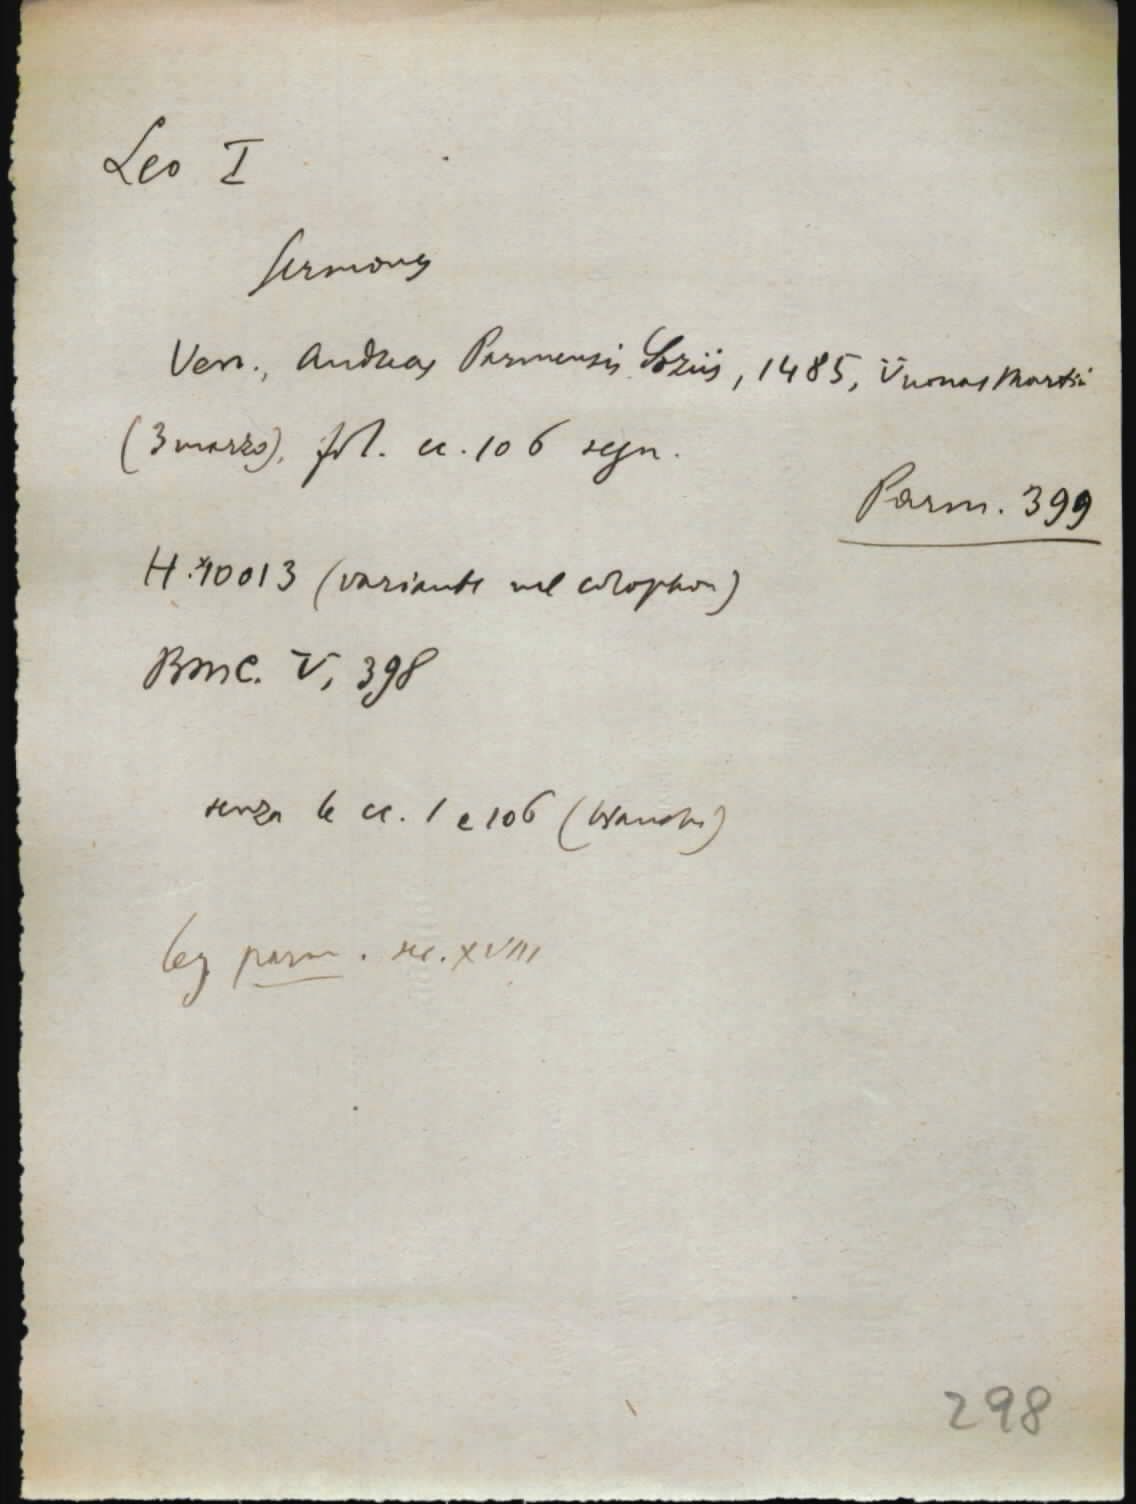 Leo I
Sermones
Ven., Andreas Parmensis Soziis, 1485, V nonas Martii
(3 marzo), fol. cc. 106 segn.
Parm. 399
H.*10013 (variante nel colophon)
BMC. V, 398
senza le cc. 1 e 106 (bianche)
leg parm. sec. XVIII
298